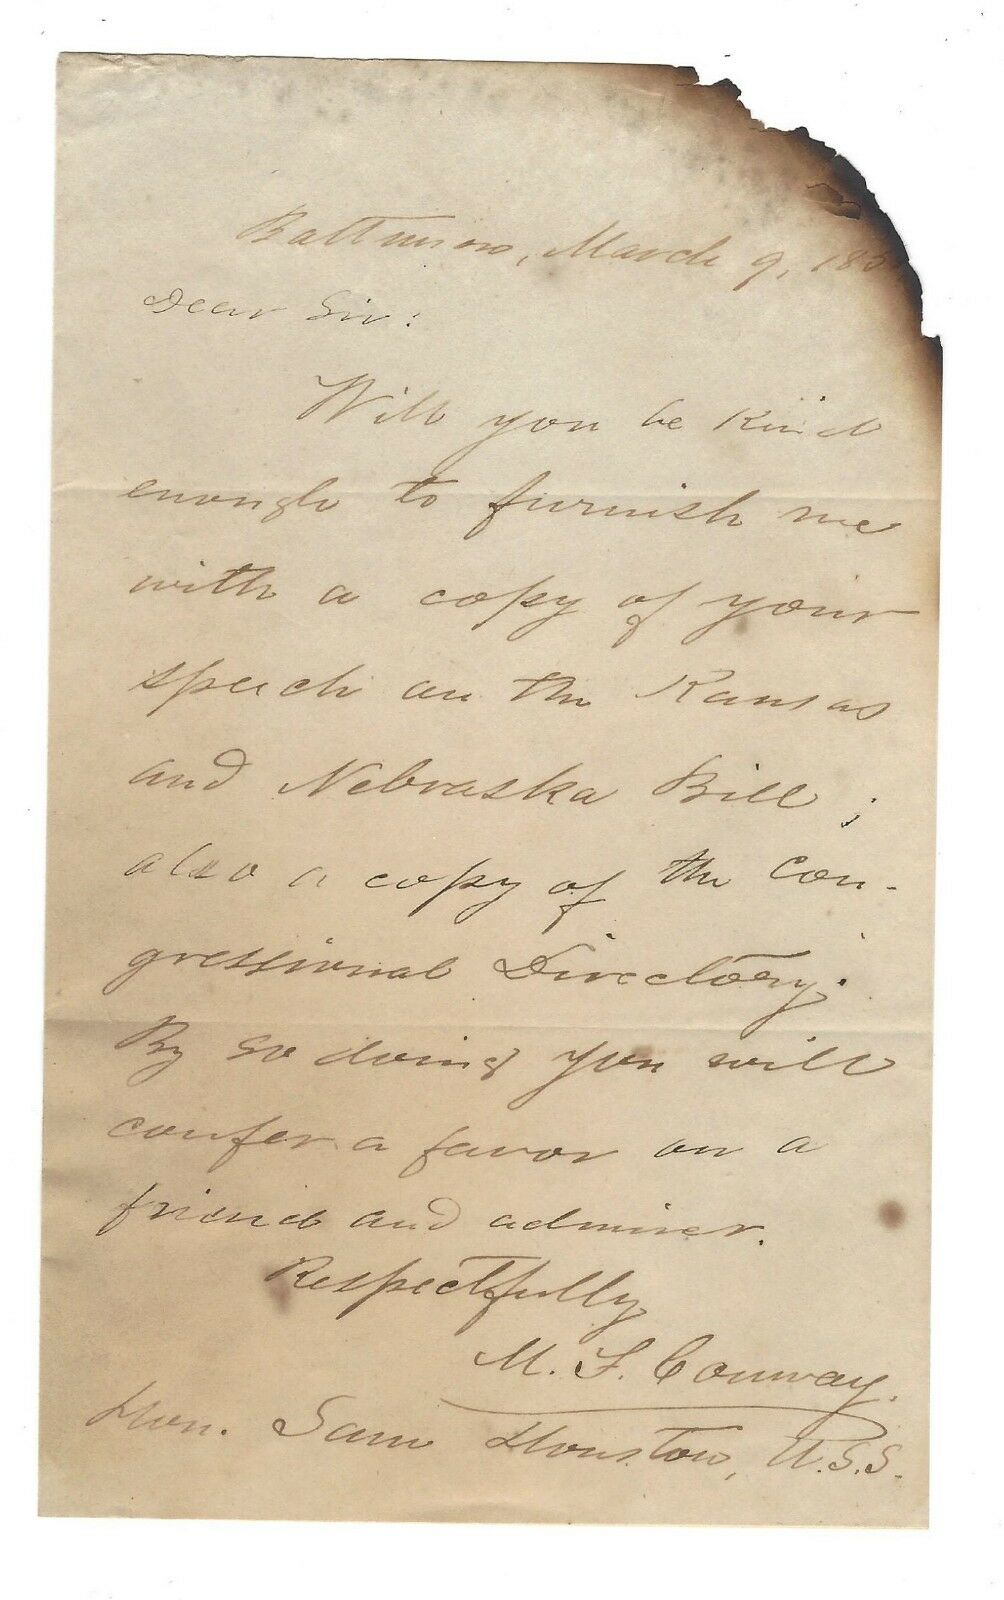 Baltimore, March 9, 185
Dear Sir:
Will you be kind
enough to furnish me
with a copy of your
speech on the Kansas
and Nebraska Bill;
also a copy of the Con-
gressional Directory.
By so doing you will
confer a favor on a
friend and admirer.
Respectfully
M. F. Conway.
Hon. Sam Houston, U.S.S.